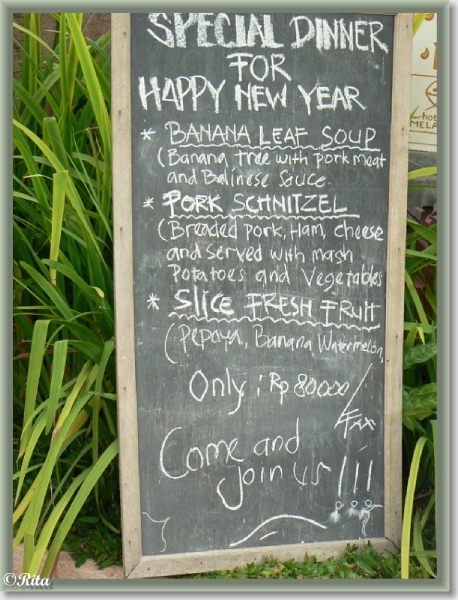 SPECIAL DINNER
FOR
HAPPY NEW YEAR
* BANANA LEAF SOUP
(Banana tree with pork meat
and Balinese Sauce.
* PORK SCHNITZEL
(Breaded pork, Ham, cheese
and served with mash
Potatoes and Vegetables
* SLICE FRESH FRUIT
(Pepaya, Banana Watermelon,
Only : Rp 80000/
TAX
Come and
join us !!!
hot
MELA
©Rita